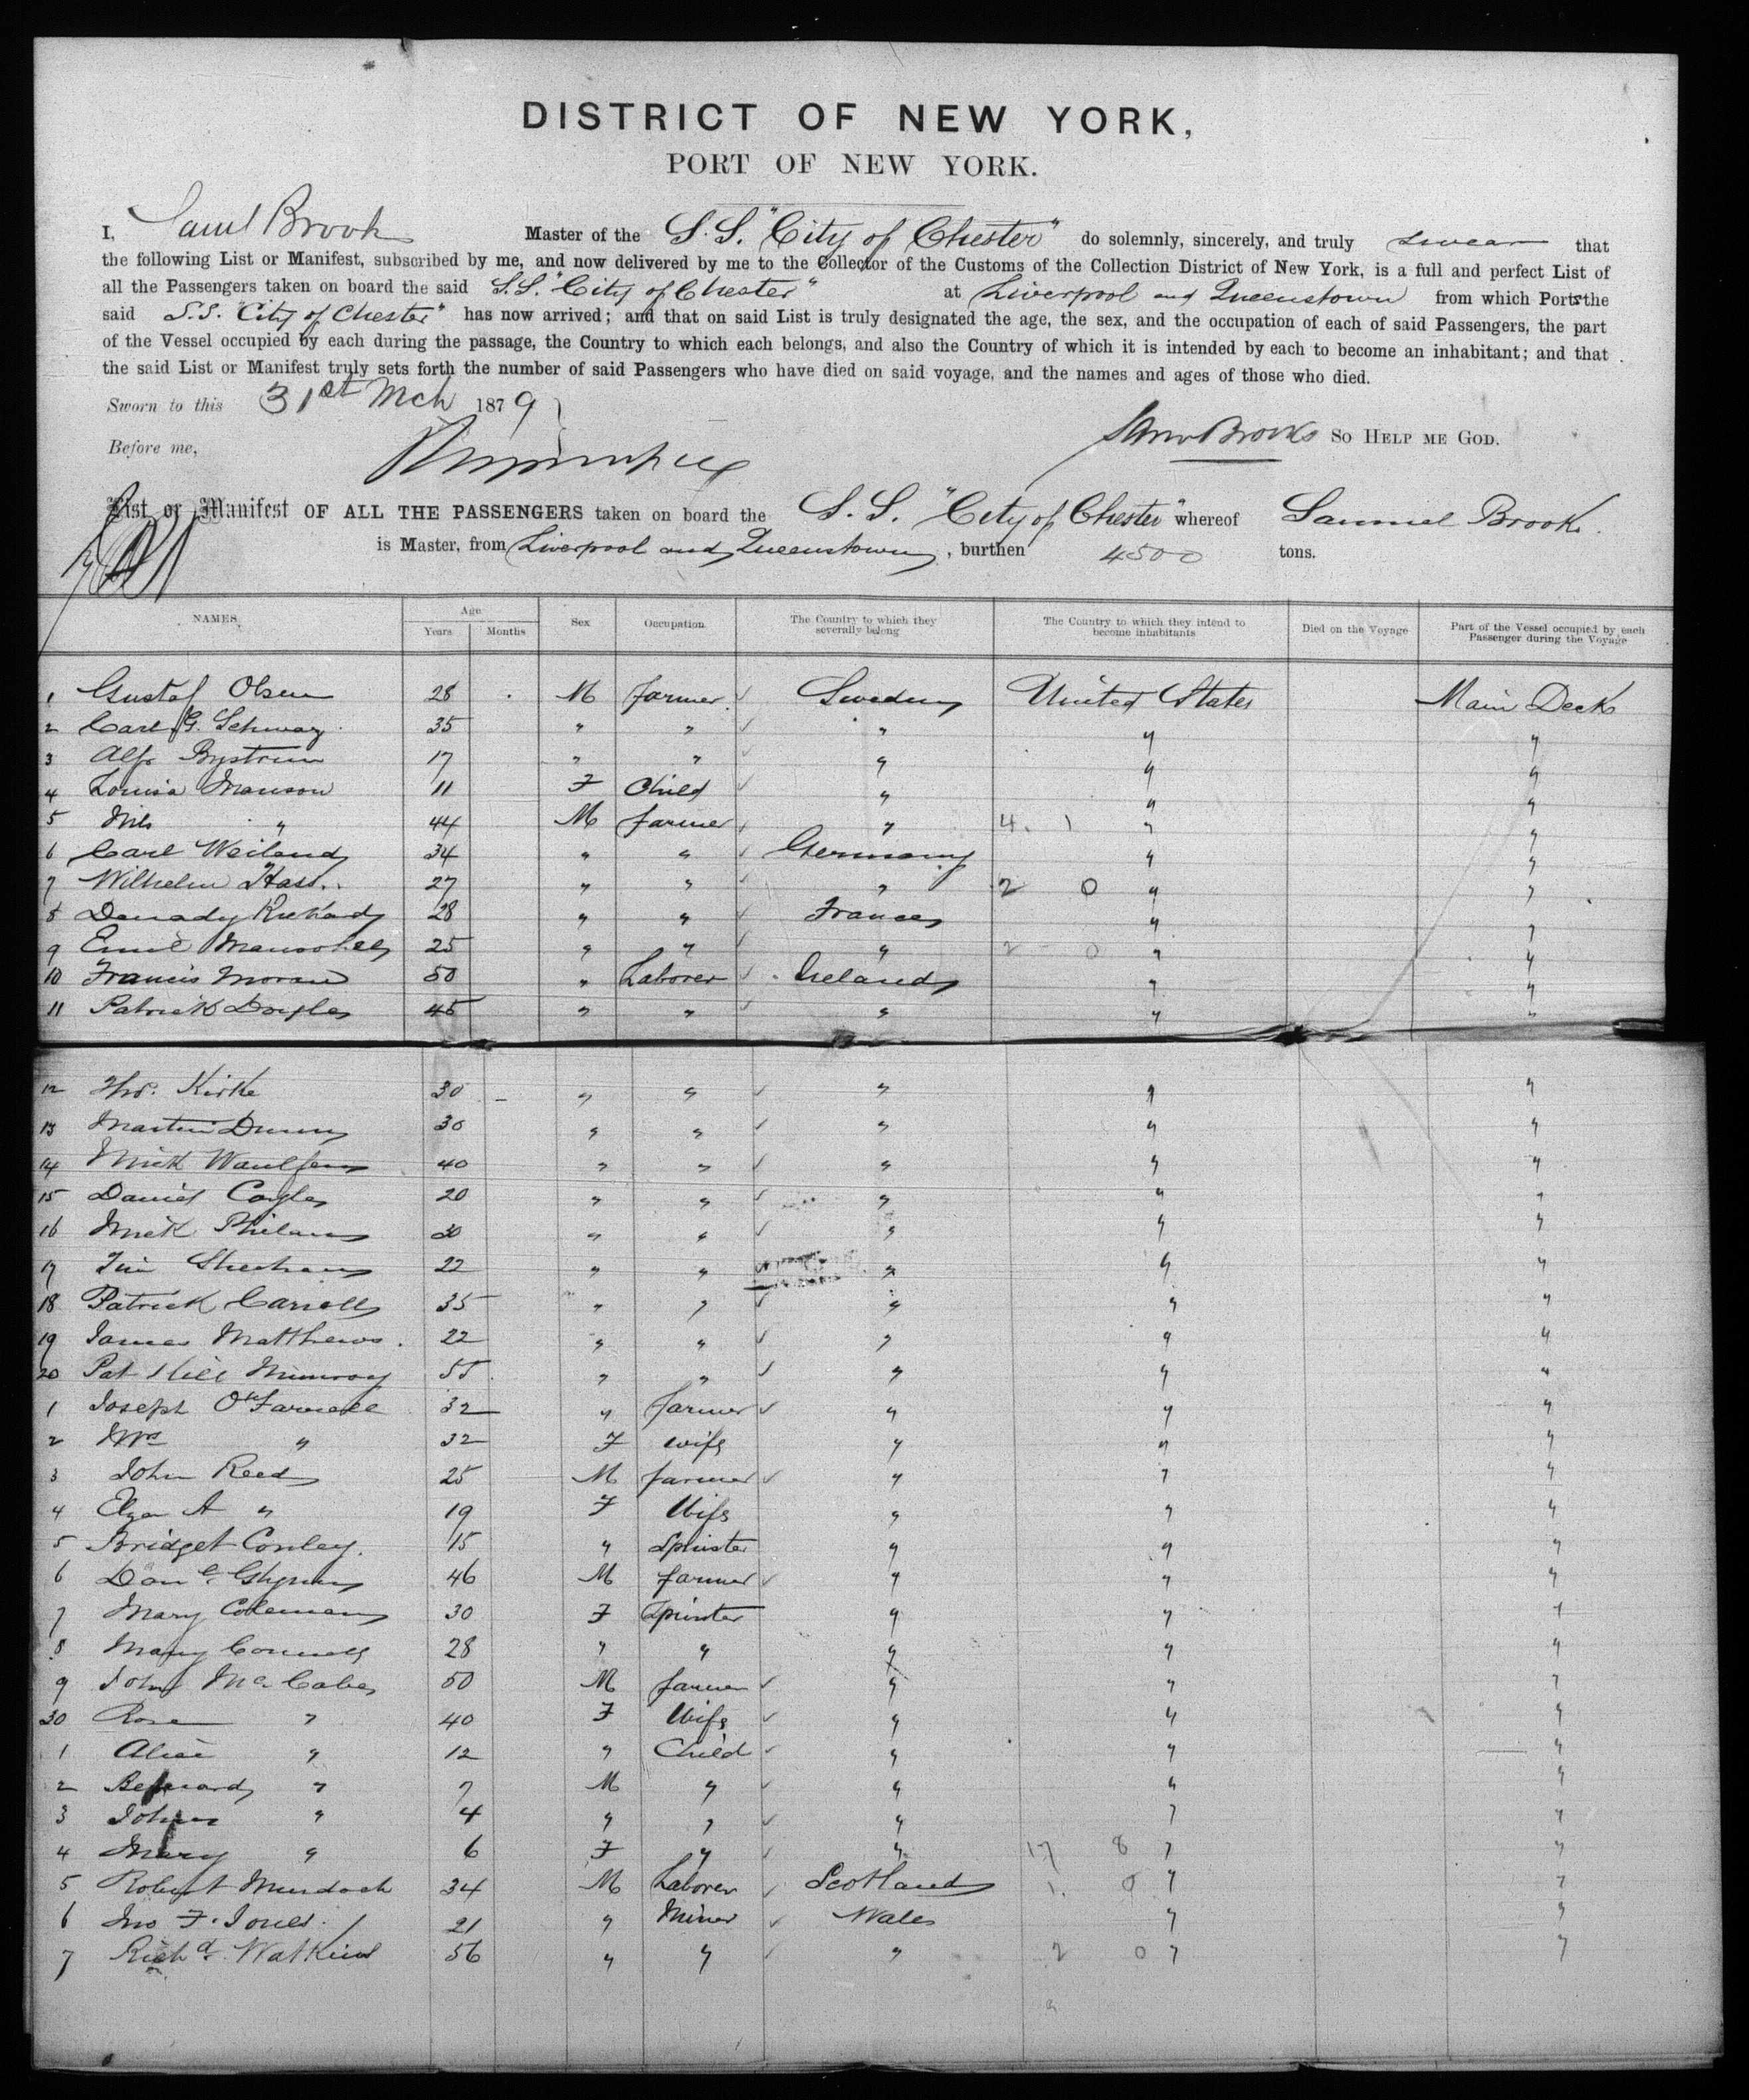 DISTRICT OF NEW YORK,
PORT OF NEW YORK.
I, Saml Brooks Master of the S.S. "City of Chester" do solemnly, sincerely, and truly swear that
the following List or Manifest, subscribed by me, and now delivered by me to the Collector of the Customs of the Collection District of New York, is a full and perfect List of
all the Passengers taken on board the said S.S. "City of Chester" at Liverpool and Queenstown from which Ports the
said S.S. "City of Chester" has now arrived; and that on said List is truly designated the age, the sex, and the occupation of each of said Passengers, the part
of the Vessel occupied by each during the passage, the Country to which each belongs, and also the Country of which it is intended by each to become an inhabitant; and that
the said List or Manifest truly sets forth the number of said Passengers who have died on said voyage, and the names and ages of those who died.
Sworn to this 31st Mch 1879
Saml Brooks SO HELP ME GOD.
Before me,
List or Manifest OF ALL THE PASSENGERS taken on board the S.S. "City of Chester" whereof Samuel Brooks
is Master, from Liverpool and Queenstown, burthen 4500 tons.
NAMES Age Years Months Sex Occupation The Country to which they severally belong The Country to which they intend to become inhabitants Died on the Voyage Part of the Vessel occupied by each Passenger during the Voyage
1 Gustaf Olsen 28 M farmer Sweden United States Main Deck
2 Carl G. Schwaz 35 " " " " "
3 Alfr Bystrum 17 " " " " "
4 Louisa Manson 11 F Child " " "
5 Nils " 44 M farmer " 4. 1 " "
6 Carl Weiland 34 " " Germany " "
7 Wilhelm Hass 27 " " " 2 0 " "
8 Rickard 28 " " France " "
9 Emile 25 " " " 2 0 " "
10 Francis Moran 50 " Laborer Ireland " "
11 Patrick Doyle 45 " " " " "
12 Thos. Kirke 30 " " " " "
13 Martin Dunn 30 " " " " "
14 Mick 40 " " " " "
15 Daniel Coyle 20 " " " " "
16 Mick Phelan 30 " " " " "
17 Tim Sheehan 22 " " " " "
18 Patrick Carroll 35 " " " " "
19 James Matthews. 22 " " " " "
20 Pat 55 " " " " "
1 Joseph O'Farrell 32 " farmer " " "
2 Mrs " 32 F wife " " "
3 John Reed 25 M farmer " " "
4 Elza A " 19 F Wife " " "
5 Bridget Conley. 15 " Spinster " " "
6 Danl Glynn 46 M farmer " " "
7 Mary Coleman 30 F Spinster " " "
8 Mary Connell 28 " " " " "
9 John McCabe 50 M farmer " " "
30 Rose " 40 F Wife " " "
1 Alice " 12 " Child " " "
2 Bernard " 7 M " " " "
3 John " 4 " " " " "
4 Mary " 6 F " " 17 8 " "
5 Robert Murdoch 34 M Laborer Scotland 1. 0 " "
6 Jno F. Jones. 21 " Miner Wales " "
7 Richd. Watkins 56 " " " 2 0 " "